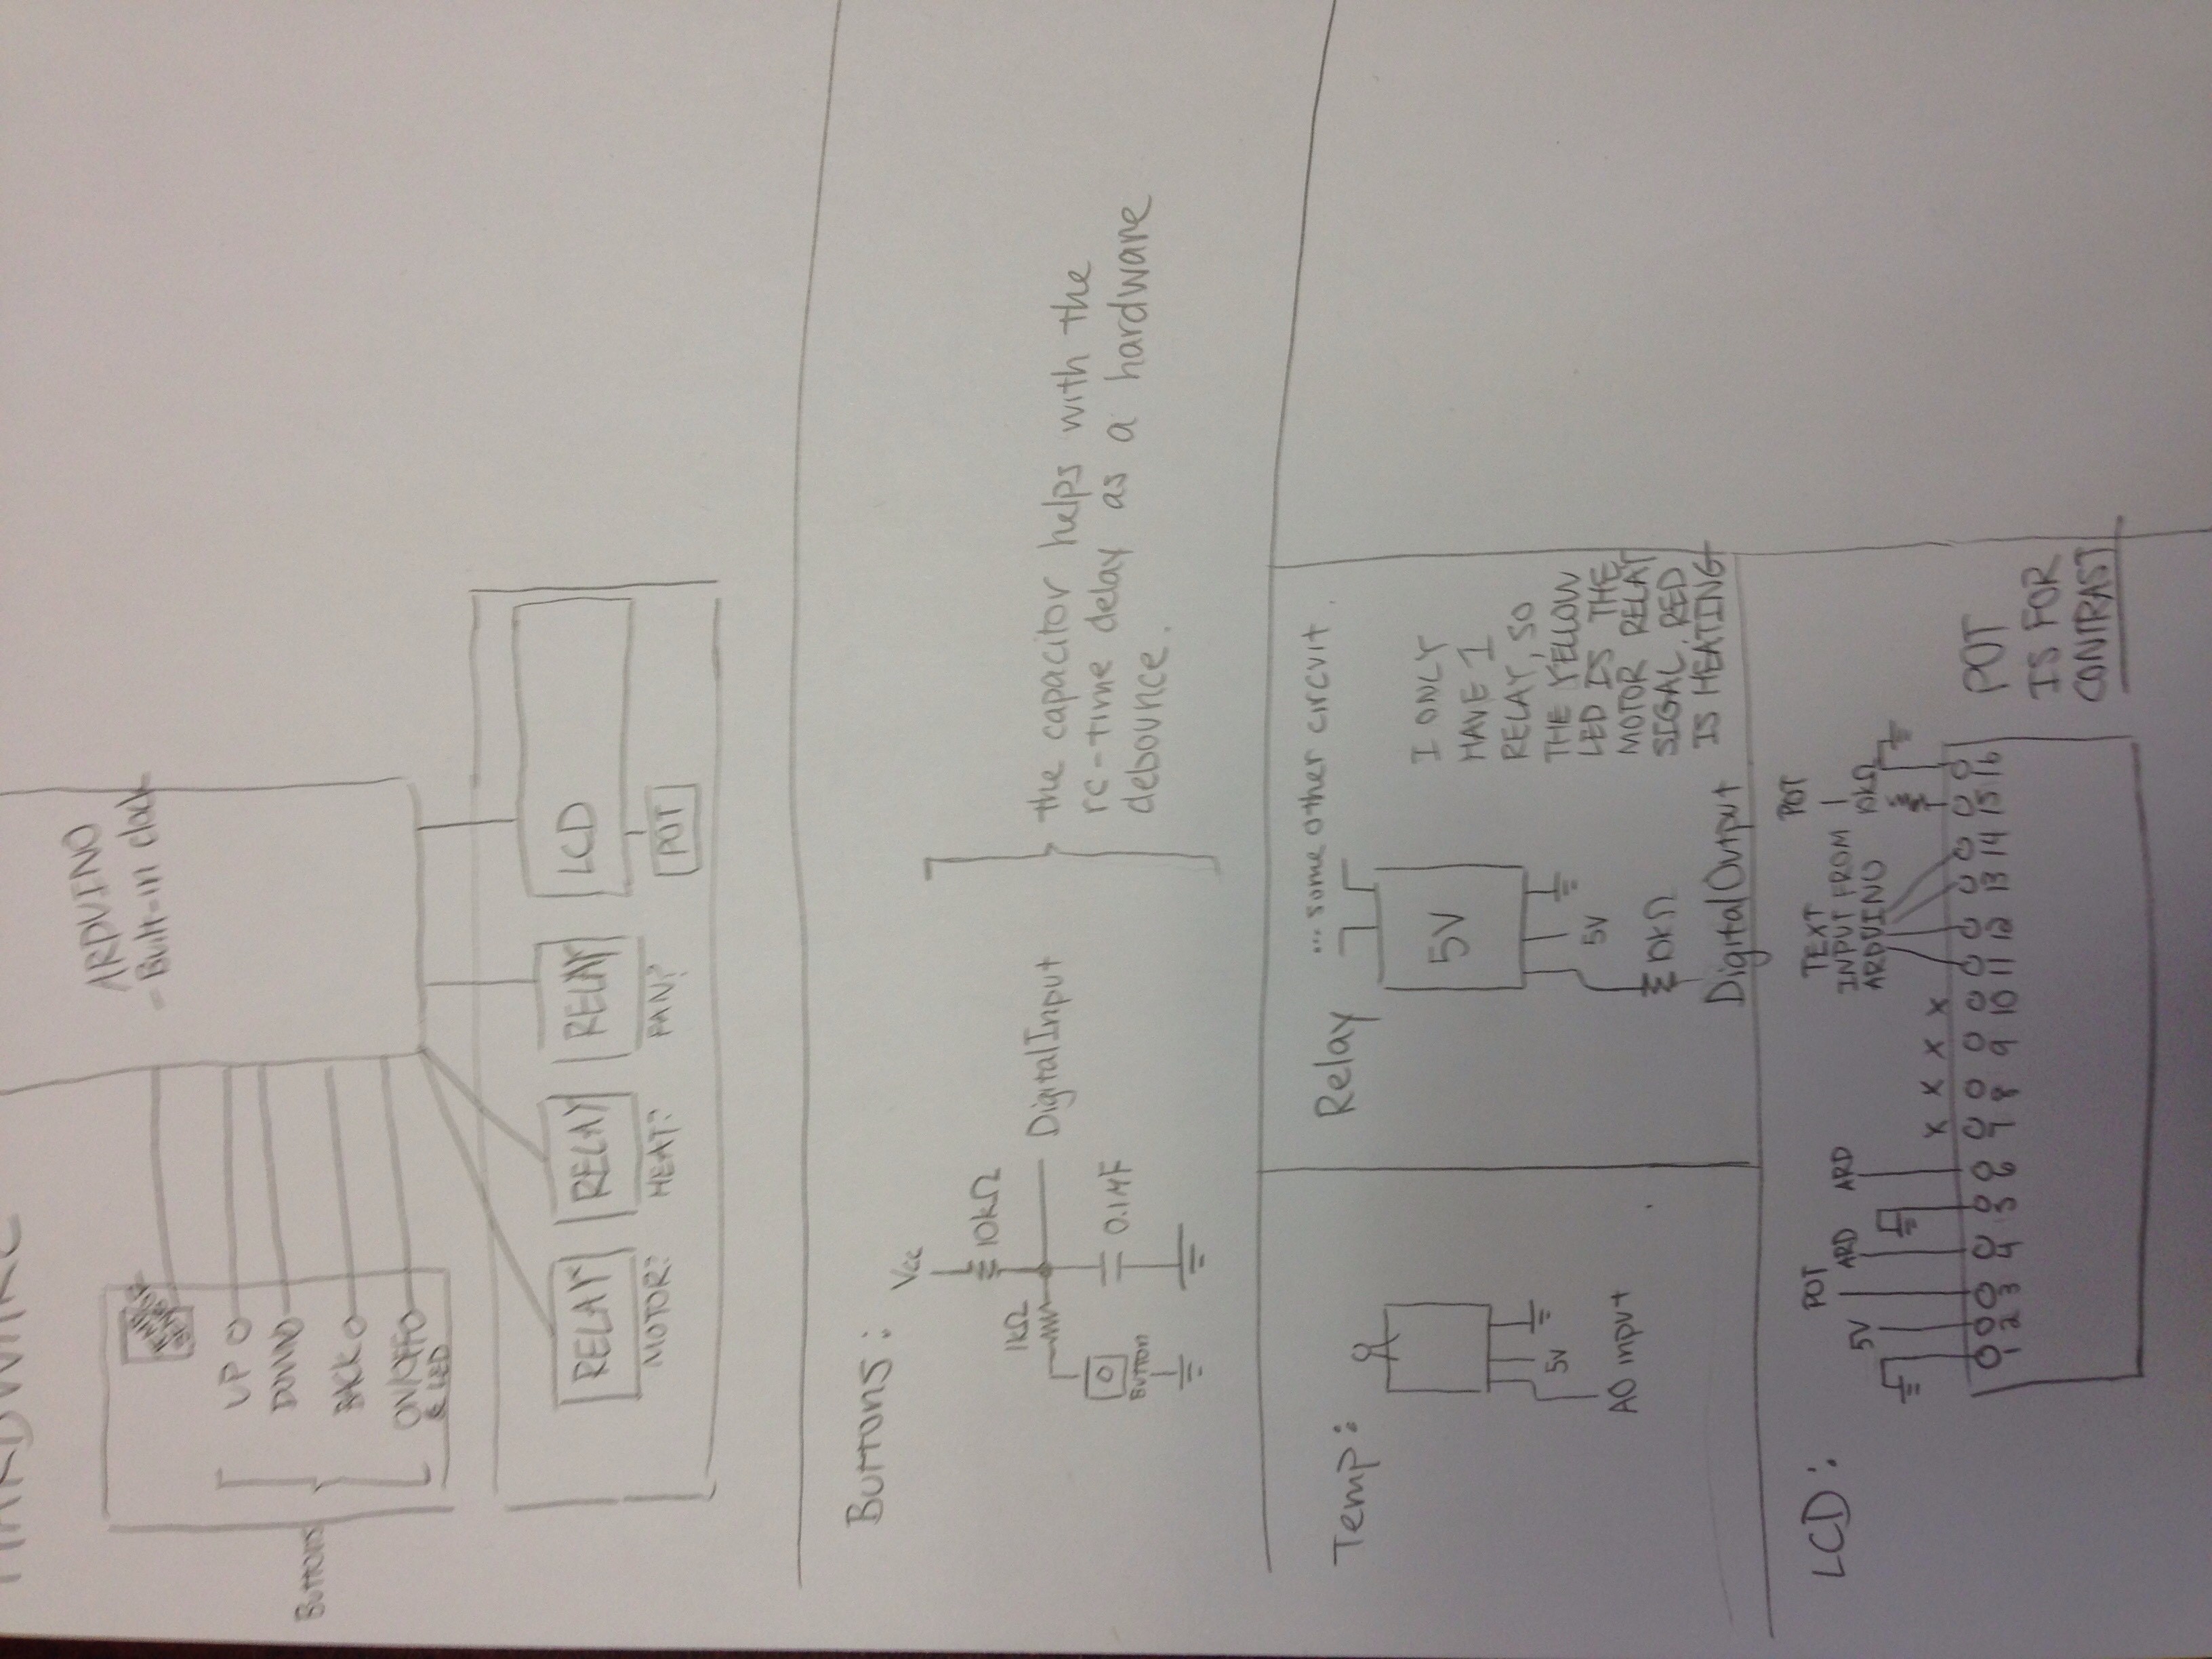 HARDWARE
ARDUINO
- Built-in clock
TEMP
SENSOR
UP
DOWN
Buttons
BACK
ON/OFF
& LED
RELAY
RELAY
RELAY
LCD
MOTOR?
HEAT?
FAN?
POT
Buttons:
Vcc
10kΩ
1kΩ
Digital Input
Button
0.1µF
the capacitor helps with the
rc-time delay as a hardware
debounce.
Temp:
5V
A0 input
Relay
... some other circuit.
5V
5V
10kΩ
Digital Output
I ONLY
HAVE 1
RELAY, SO
THE YELLOW
LED IS THE
MOTOR RELAY
SIGAL. RED
IS HEATING
LCD:
5V
POT
ARD
ARD
TEXT
INPUT FROM
ARDUINO
POT
10kΩ
x x x x
1 2 3 4 5 6 7 8 9 10 11 12 13 14 15 16
POT
IS FOR
CONTRAST